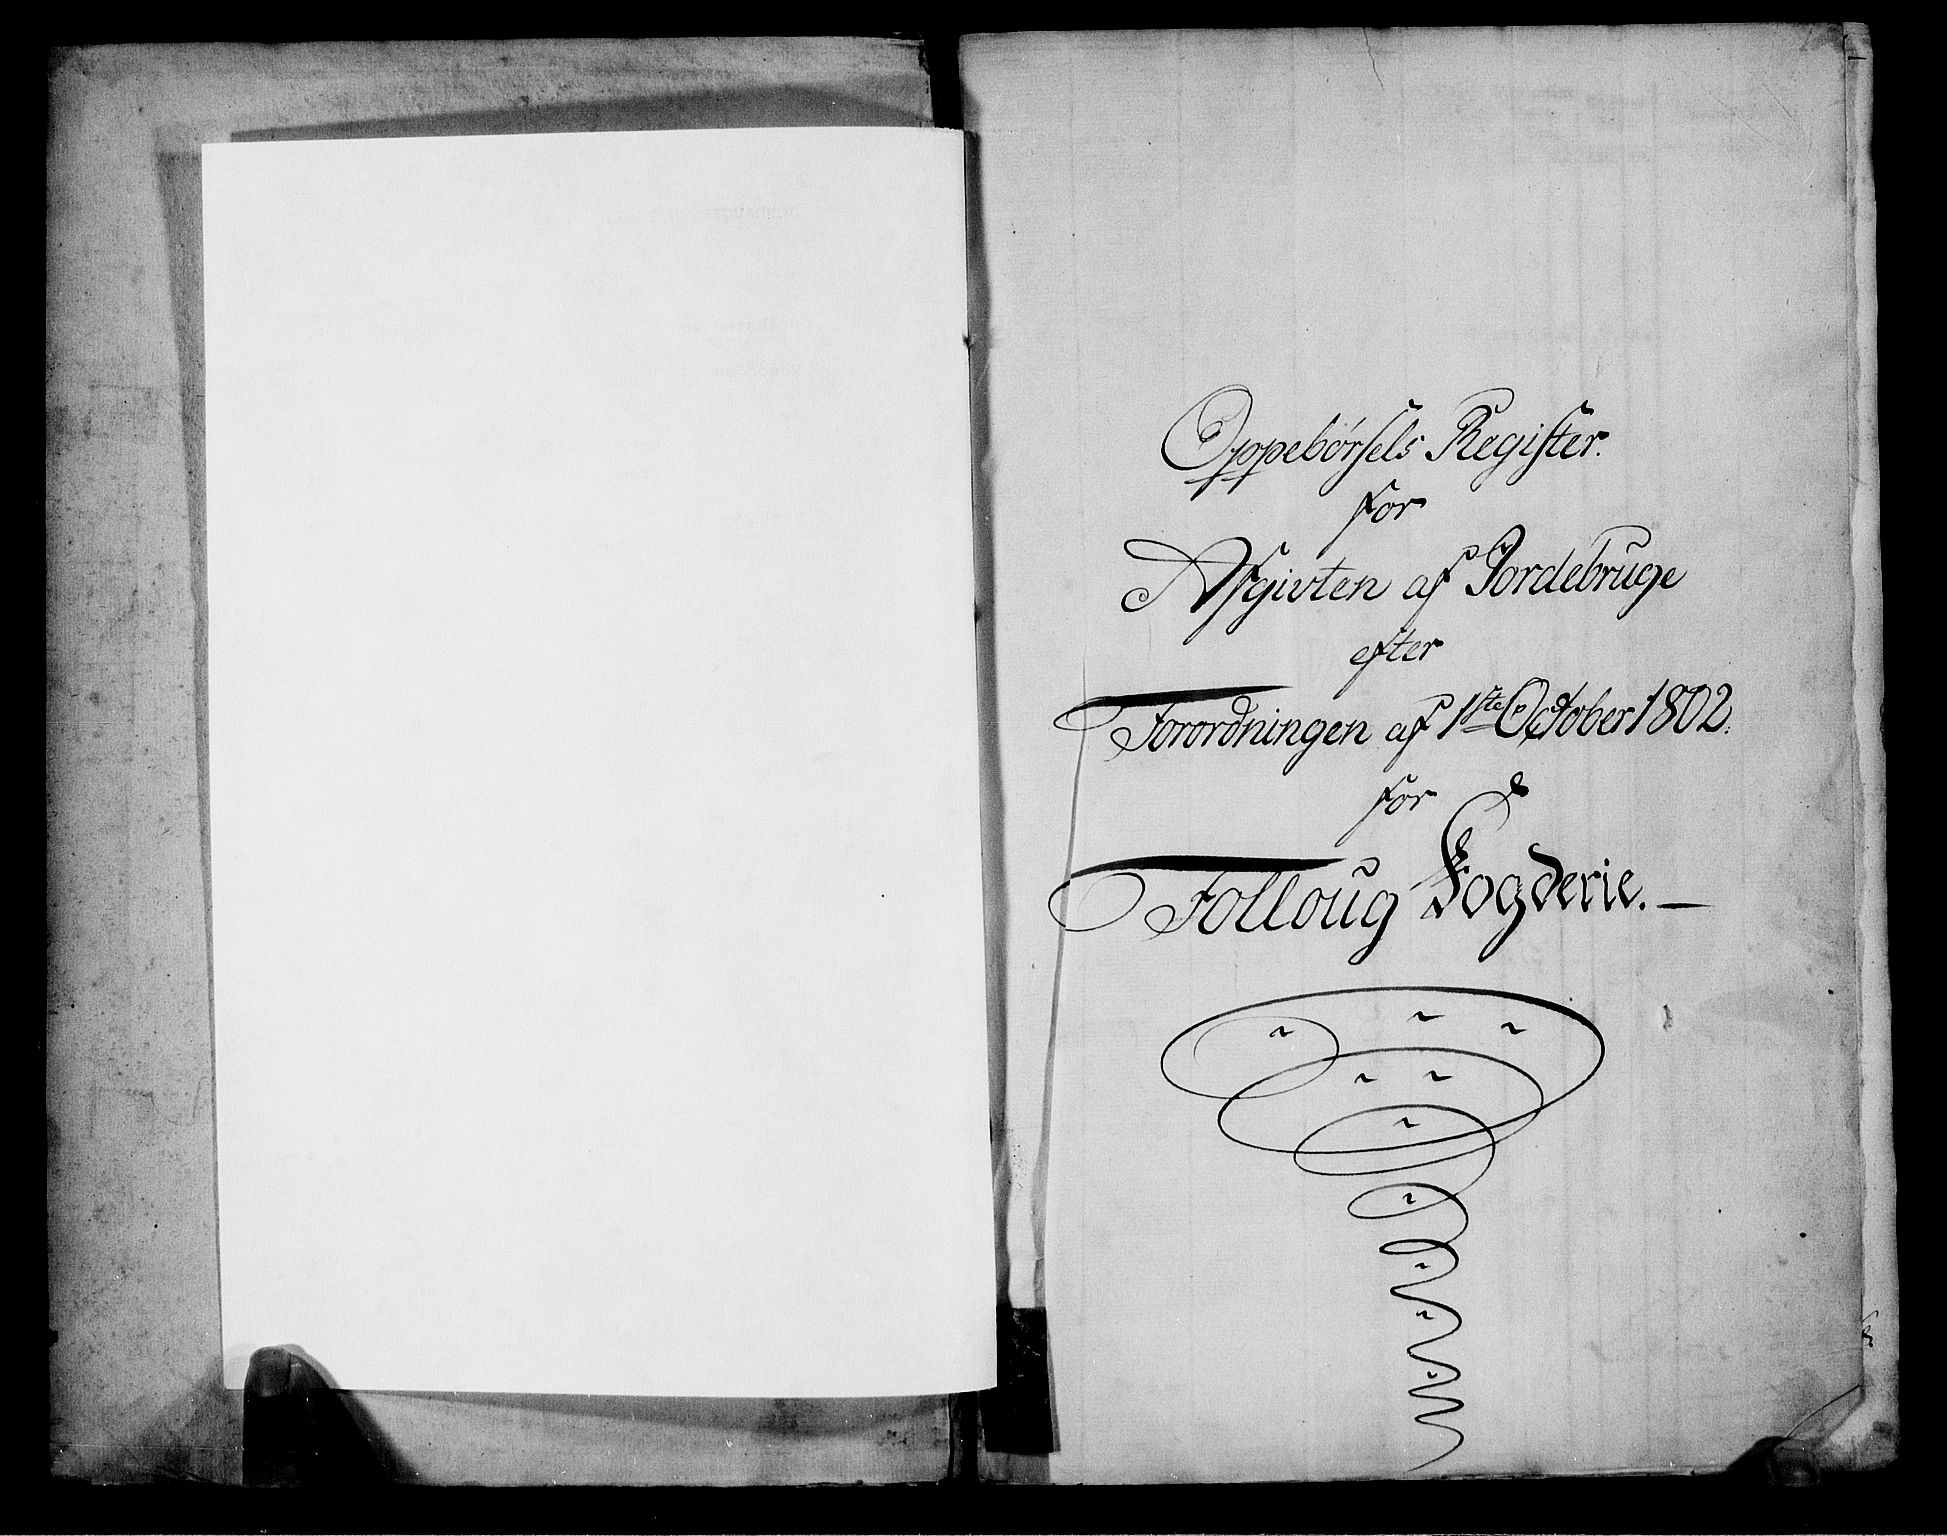 Oppebørsels Register.
for
Afgivten af Jordebruge
efter
Forordningen af 1ste October 1802.
for
Folloug Fogderie. —